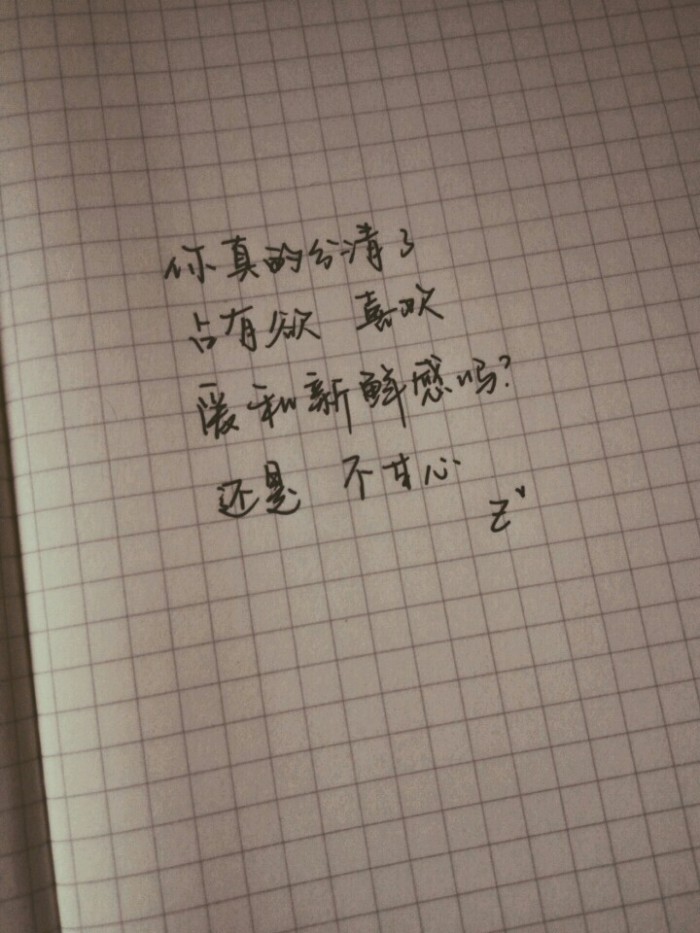 你真的分清了
占有欲 喜欢
爱和新鲜感吗?
还是 不甘心
Z